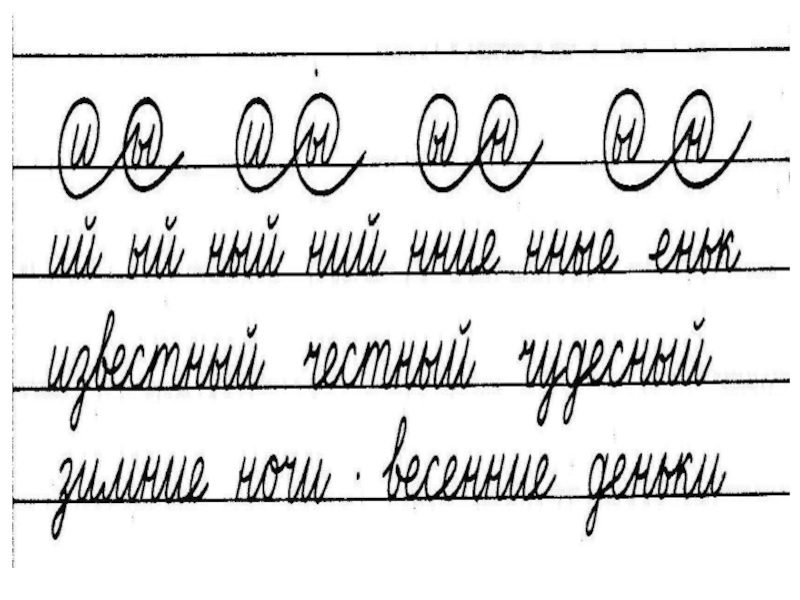 и ы и ы ы н ы н
ий ый ный ний нние нные еньк
известный честный чудесный
зимние ночи. весенние деньки